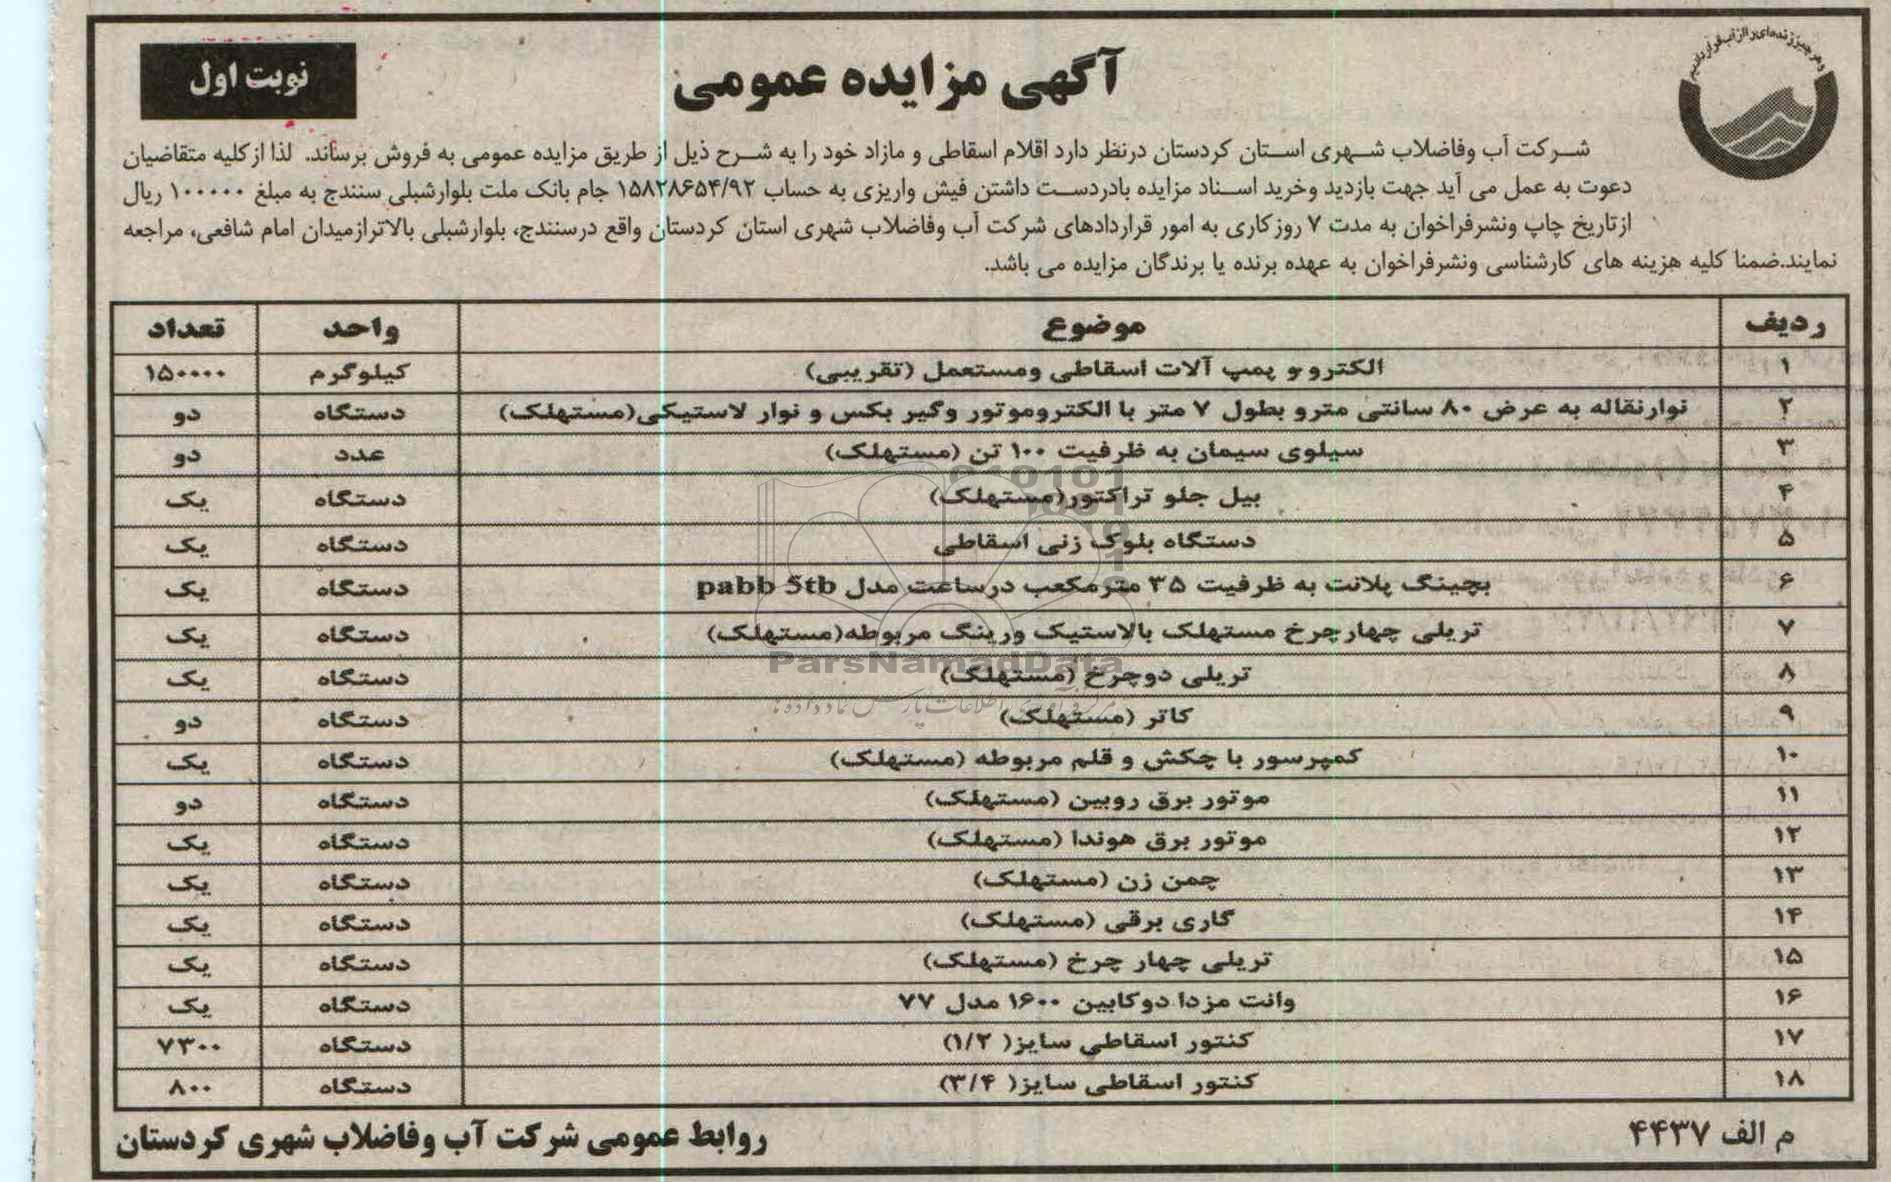 و هر چیز زنده‌ای را از آب قرار دادیم
نوبت اول
آگهی مزایده عمومی
شرکت آب وفاضلاب شهری استان کردستان درنظر دارد اقلام اسقاطی و مازاد خود را به شرح ذیل از طریق مزایده عمومی به فروش برساند. لذا ازکلیه متقاضیان
دعوت به عمل می آید جهت بازدید وخرید اسناد مزایده بادردست داشتن فیش واریزی به حساب ۱۵۸۲۸۶۵۴/۹۲ جام بانک ملت بلوارشبلی سنندج به مبلغ ۱۰۰۰۰۰ ریال
ازتاریخ چاپ ونشرفراخوان به مدت ۷ روزکاری به امور قراردادهای شرکت آب وفاضلاب شهری استان کردستان واقع درسنندج، بلوارشبلی بالاترازمیدان امام شافعی، مراجعه
نمایند.ضمنا کلیه هزینه های کارشناسی ونشرفراخوان به عهده برنده یا برندگان مزایده می باشد.
ردیف موضوع واحد تعداد
۱ الکترو و پمپ آلات اسقاطی ومستعمل (تقریبی) کیلوگرم ۱۵۰۰۰۰
۲ نوارنقاله به عرض ۸۰ سانتی مترو بطول ۷ متر با الکتروموتور وگیر بکس و نوار لاستیکی(مستهلک) دستگاه دو
۳ سیلوی سیمان به ظرفیت ۱۰۰ تن (مستهلک) عدد دو
۴ بیل جلو تراکتور(مستهلک) دستگاه یک
۵ دستگاه بلوک زنی اسقاطی دستگاه یک
۶ بچینگ پلانت به ظرفیت ۳۵ مترمکعب درساعت مدل pabb 5tb دستگاه یک
۷ تریلی چهارچرخ مستهلک بالاستیک ورینگ مربوطه(مستهلک) دستگاه یک
۸ تریلی دوچرخ (مستهلک) دستگاه یک
۹ کاتر (مستهلک) دستگاه دو
۱۰ کمپرسور با چکش و قلم مربوطه (مستهلک) دستگاه یک
۱۱ موتور برق روبین (مستهلک) دستگاه دو
۱۲ موتور برق هوندا (مستهلک) دستگاه یک
۱۳ چمن زن (مستهلک) دستگاه یک
۱۴ گاری برقی (مستهلک) دستگاه یک
۱۵ تریلی چهار چرخ (مستهلک) دستگاه یک
۱۶ وانت مزدا دوکابین ۱۶۰۰ مدل ۷۷ دستگاه یک
۱۷ کنتور اسقاطی سایز( ۱/۲) دستگاه ۷۳۰۰
۱۸ کنتور اسقاطی سایز( ۳/۴) دستگاه ۸۰۰
ParsNamadData
م الف ۴۴۳۷
روابط عمومی شرکت آب وفاضلاب شهری کردستان